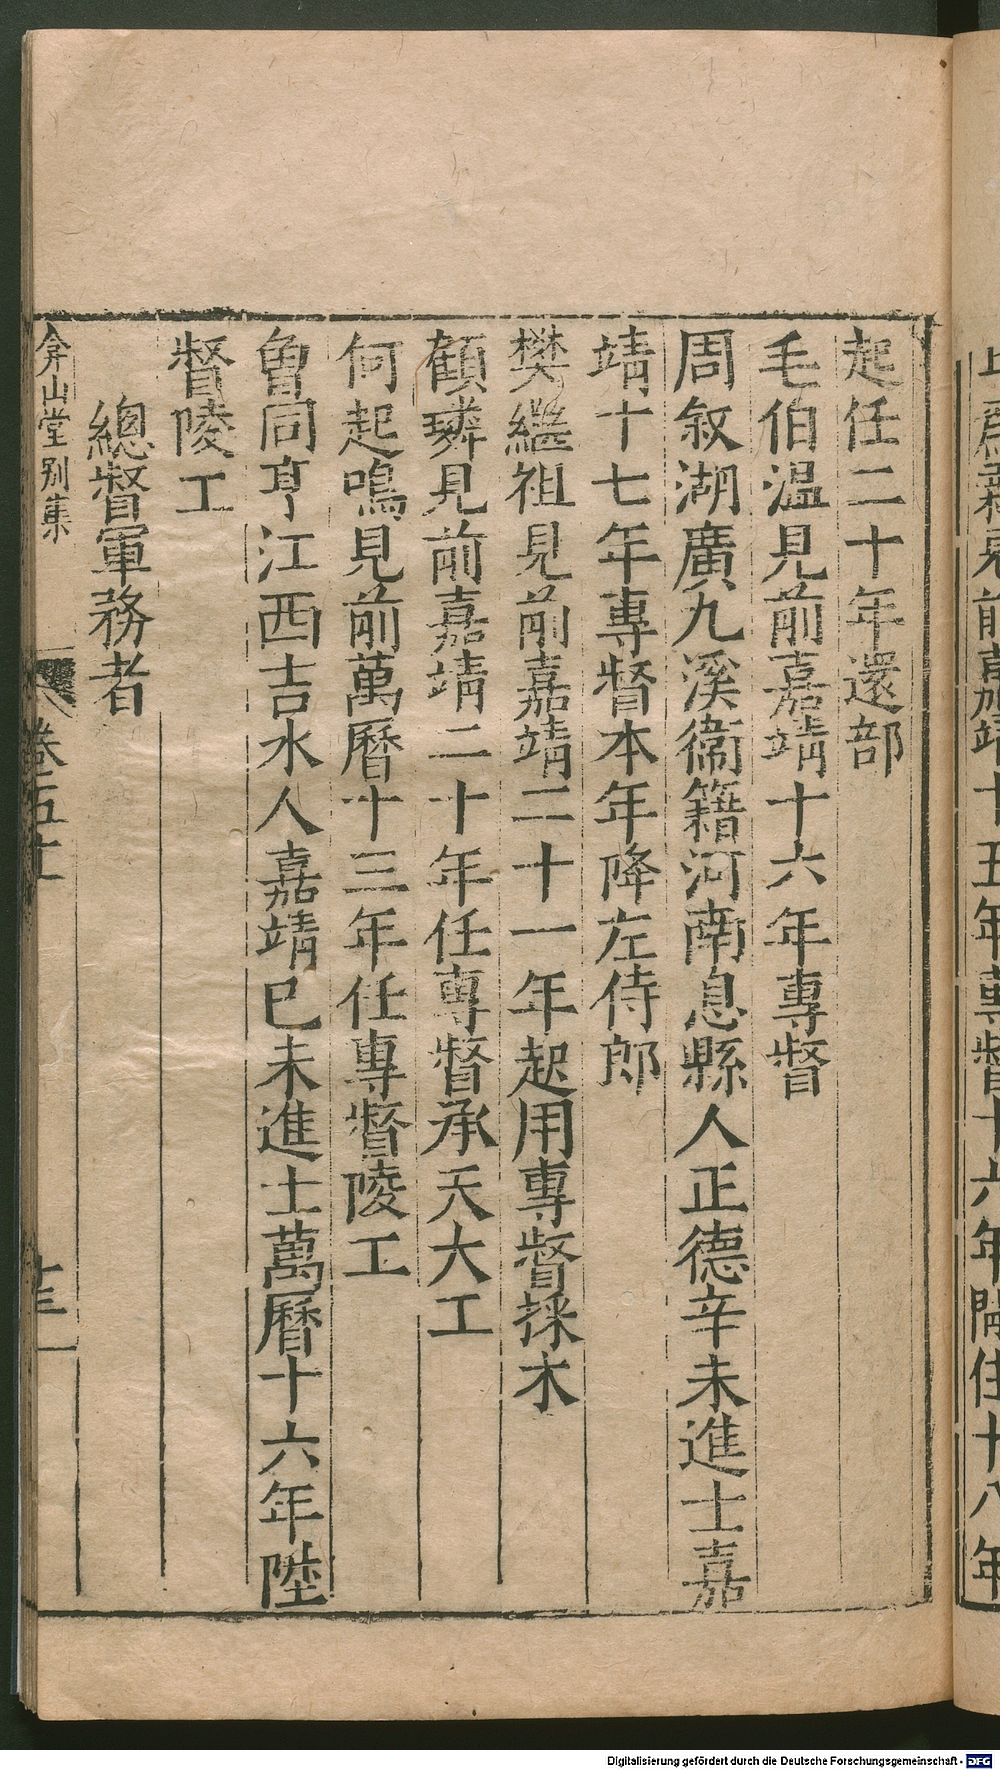 起任二十年還部
毛伯温見前嘉靖十六年專督
周叙湖廣九溪衞籍河南息縣人正德辛未進士嘉
靖十七年專督本年降左侍郎
樊繼祖見前嘉靖二十一年起用專督採木
顧璘見前嘉靖二十年任專督承天大工
何起鳴見前萬曆十三年任專督陵工
魯同亨江西吉水人嘉靖巳未進士萬曆十六年陞
督陵工
總督軍務者
弇山堂别集
卷五十
Digitalisierung gefördert durch die Deutsche Forschungsgemeinschaft - DFG